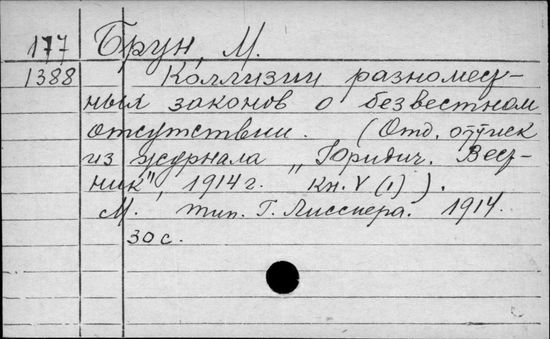 177 Брун, М.
1388 Коллизии разномест-
ных законов о безвестном
отсутствии. (Отд. оттиск
из журнала „Юридич. Вест-
ник", 1914 г. кн. V (I) ).
М. тип. Г. Лисснера. 1914.
30 с.